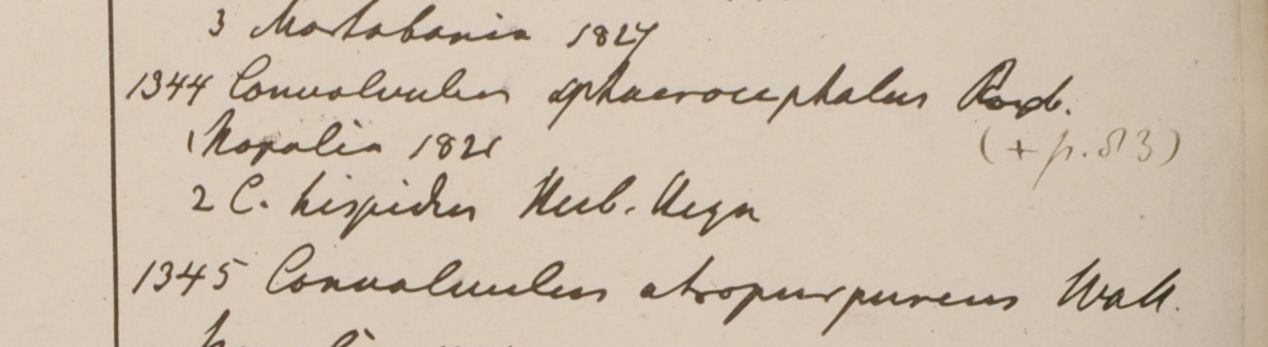 3 Martabania 1827
1344 Convolvulus sphaerocephalus Roxb.
1 Napalia 1821 (+ p. 83)
2 C. hispidus Herb. Heyn
1345 Convolvulus atropurpureus Wall.